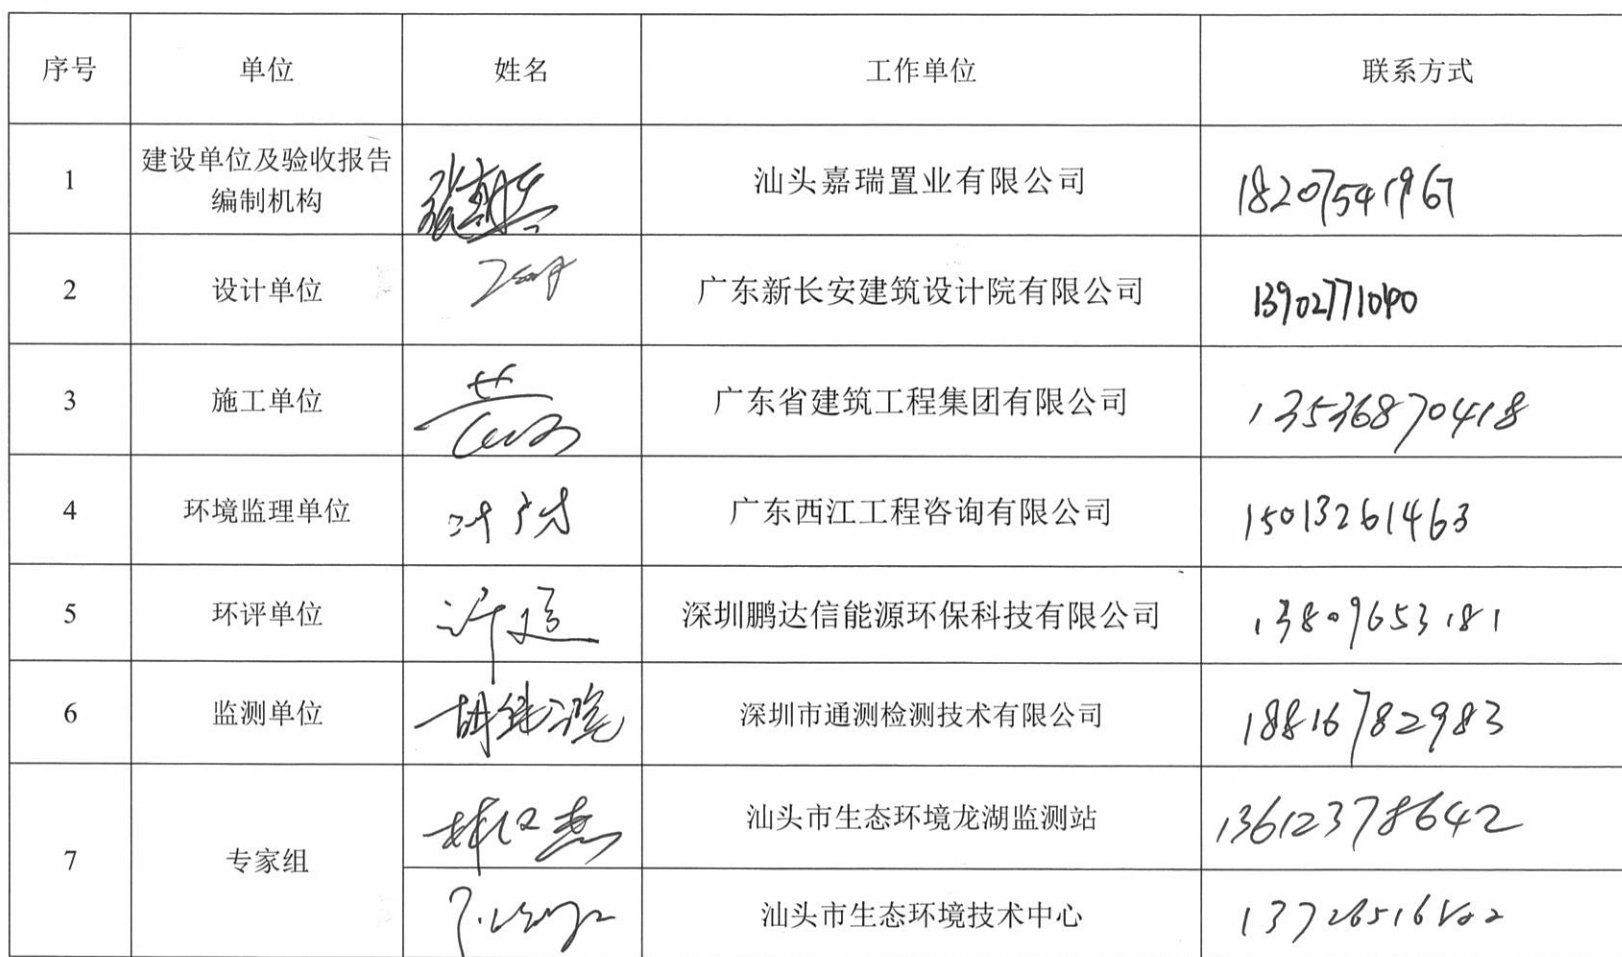 序号 单位 姓名 工作单位 联系方式
1 建设单位及验收报告 汕头嘉瑞置业有限公司 18207541967
编制机构
2 设计单位 广东新长安建筑设计院有限公司 13902771090
3 施工单位 广东省建筑工程集团有限公司 13536870418
4 环境监理单位 叶广才 广东西江工程咨询有限公司 15013261463
5 环评单位 深圳鹏达信能源环保科技有限公司 13809653181
6 监测单位 深圳市通测检测技术有限公司 18816782983
7 专家组 汕头市生态环境龙湖监测站 13612378642
汕头市生态环境技术中心